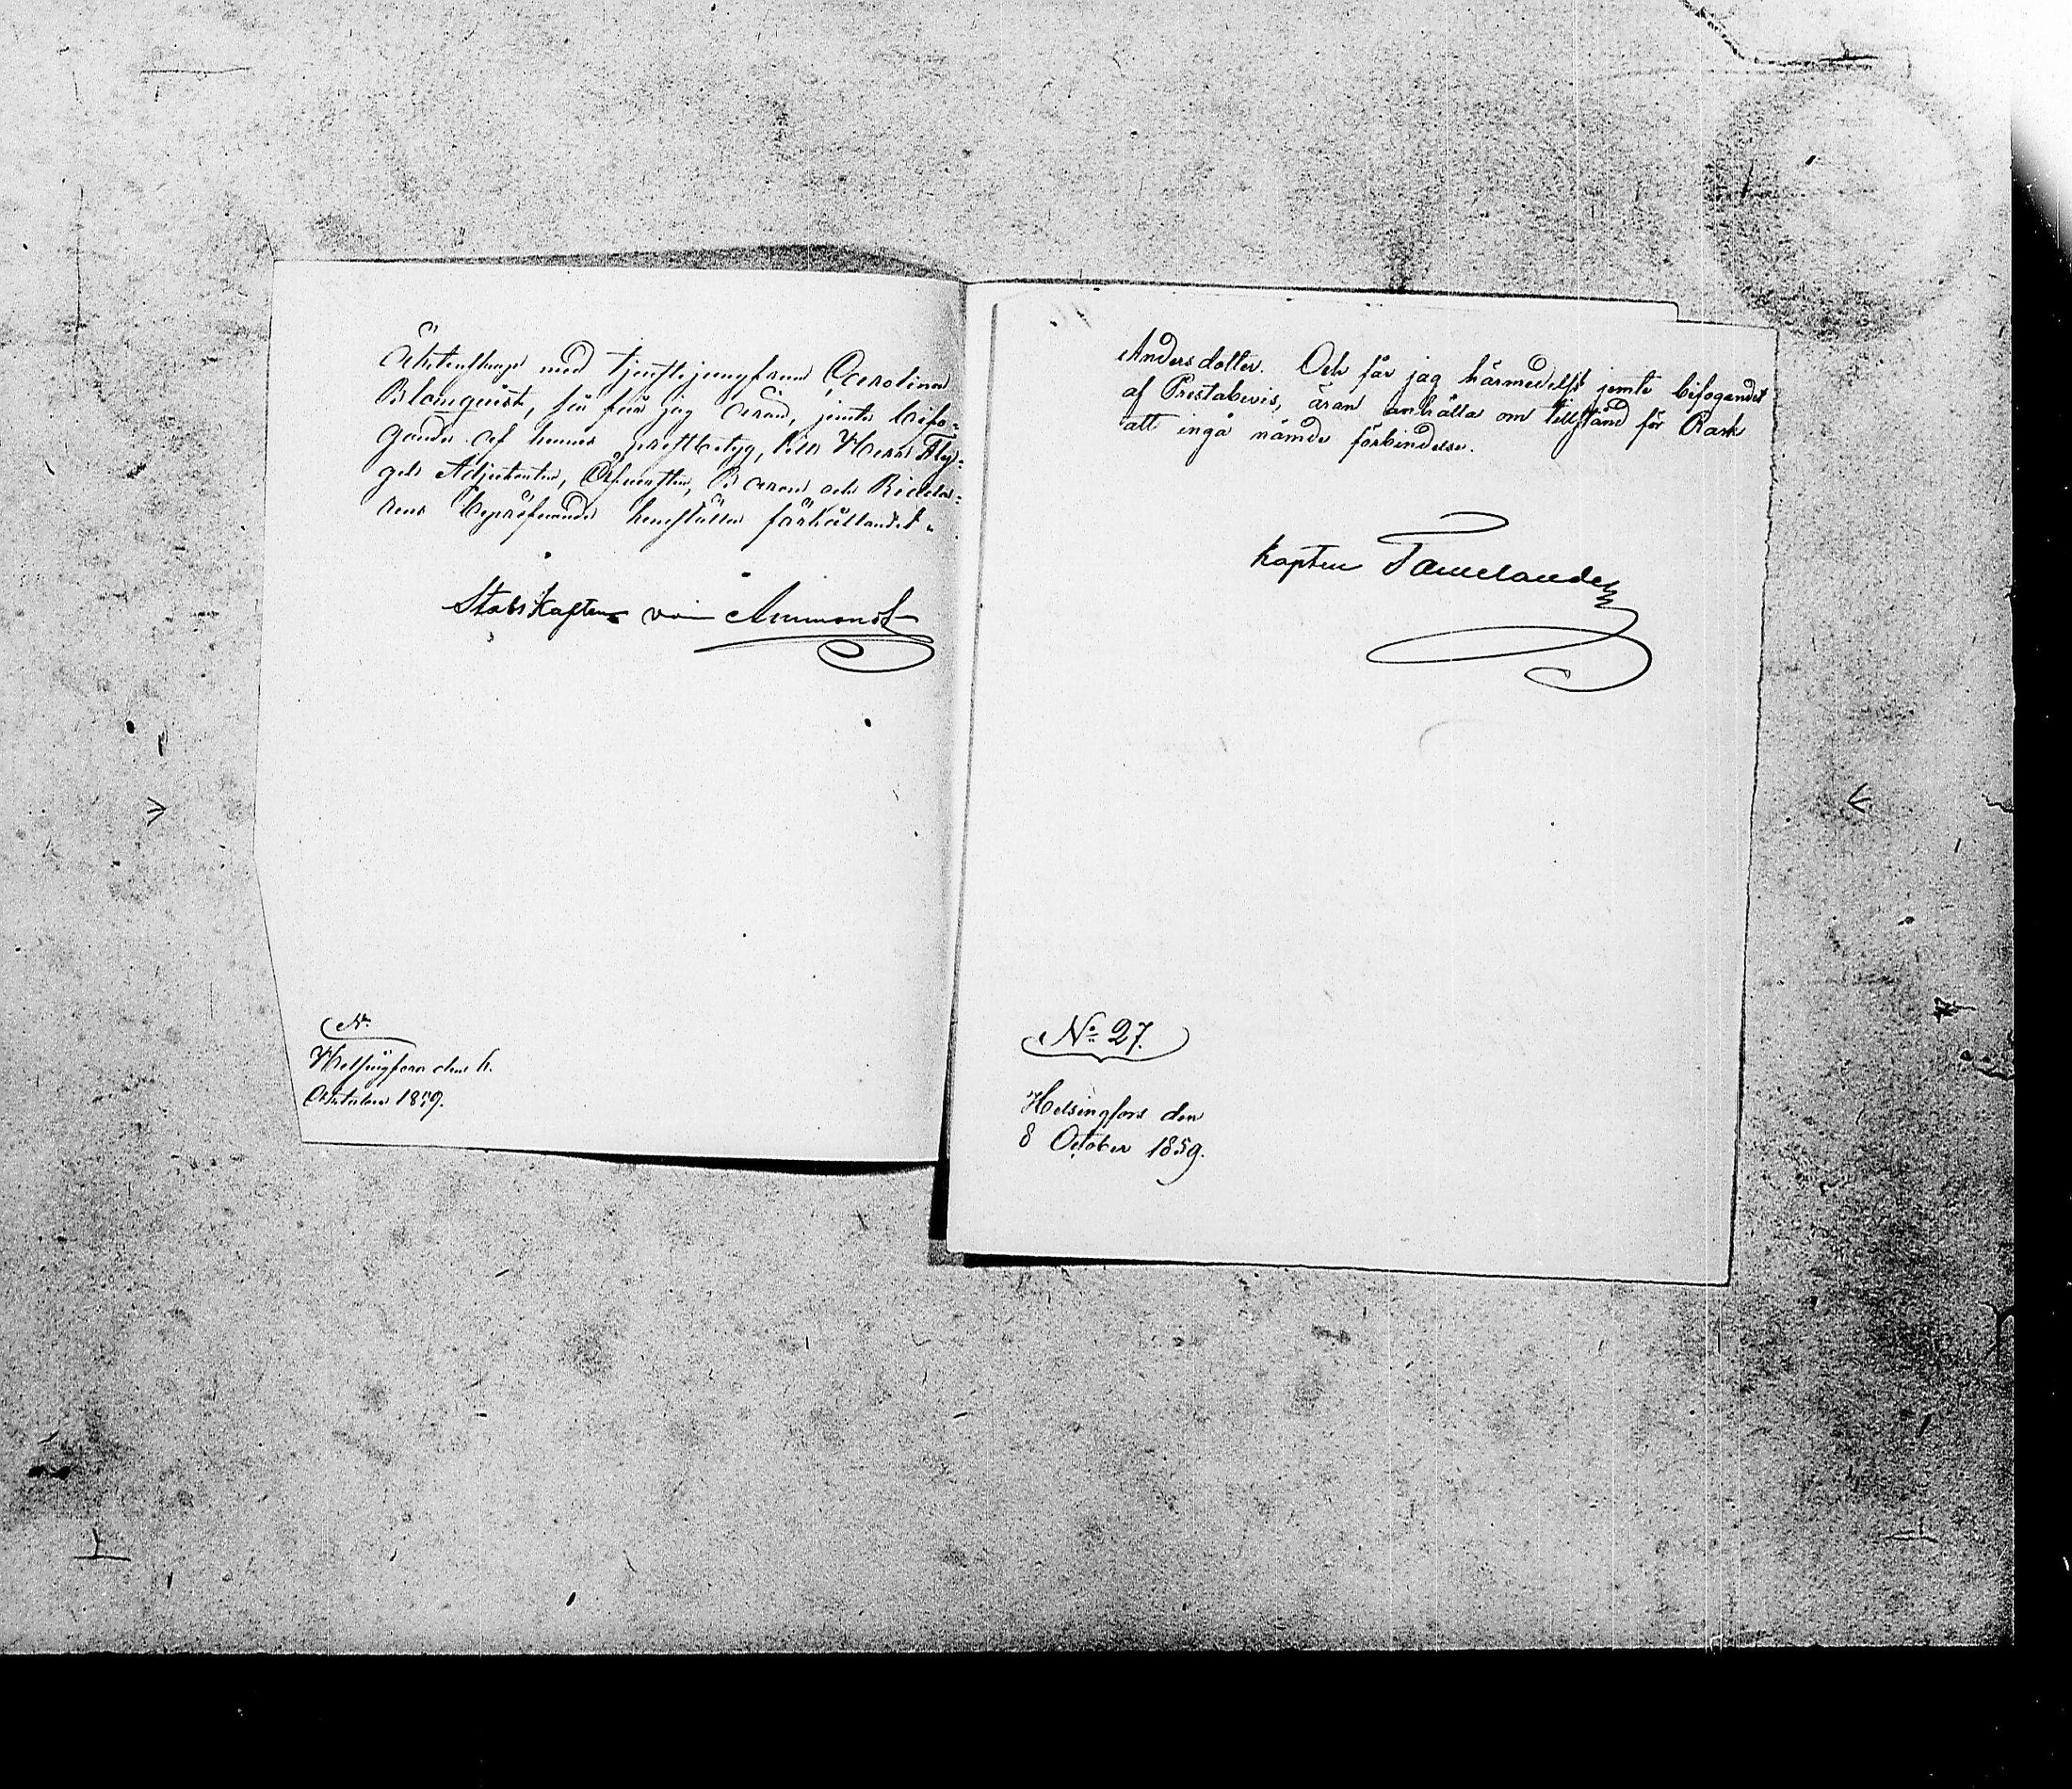 Äktenskap med tjenstejungfrun Carolina
Blomquist, så får jag äran, jemte bifo-
gande af hennes prestbetyg, till Herr Fly-
gel Adjutanten, Öfversten, Baron och Ridda-
rens bepröfvande hemställa förhållandet.
Stabskapten von Ammondt
No
Helsingfors den 6.
Oktober 1859.
Andersdotter. Och får jag härmedelst jemte bifogandet
af Prestabevis, äran anhålla om tillstånd för Rask
att ingå nämde förbindelse.
Kapten Tamelander
No 27.
Helsingfors den
8 October 1859.